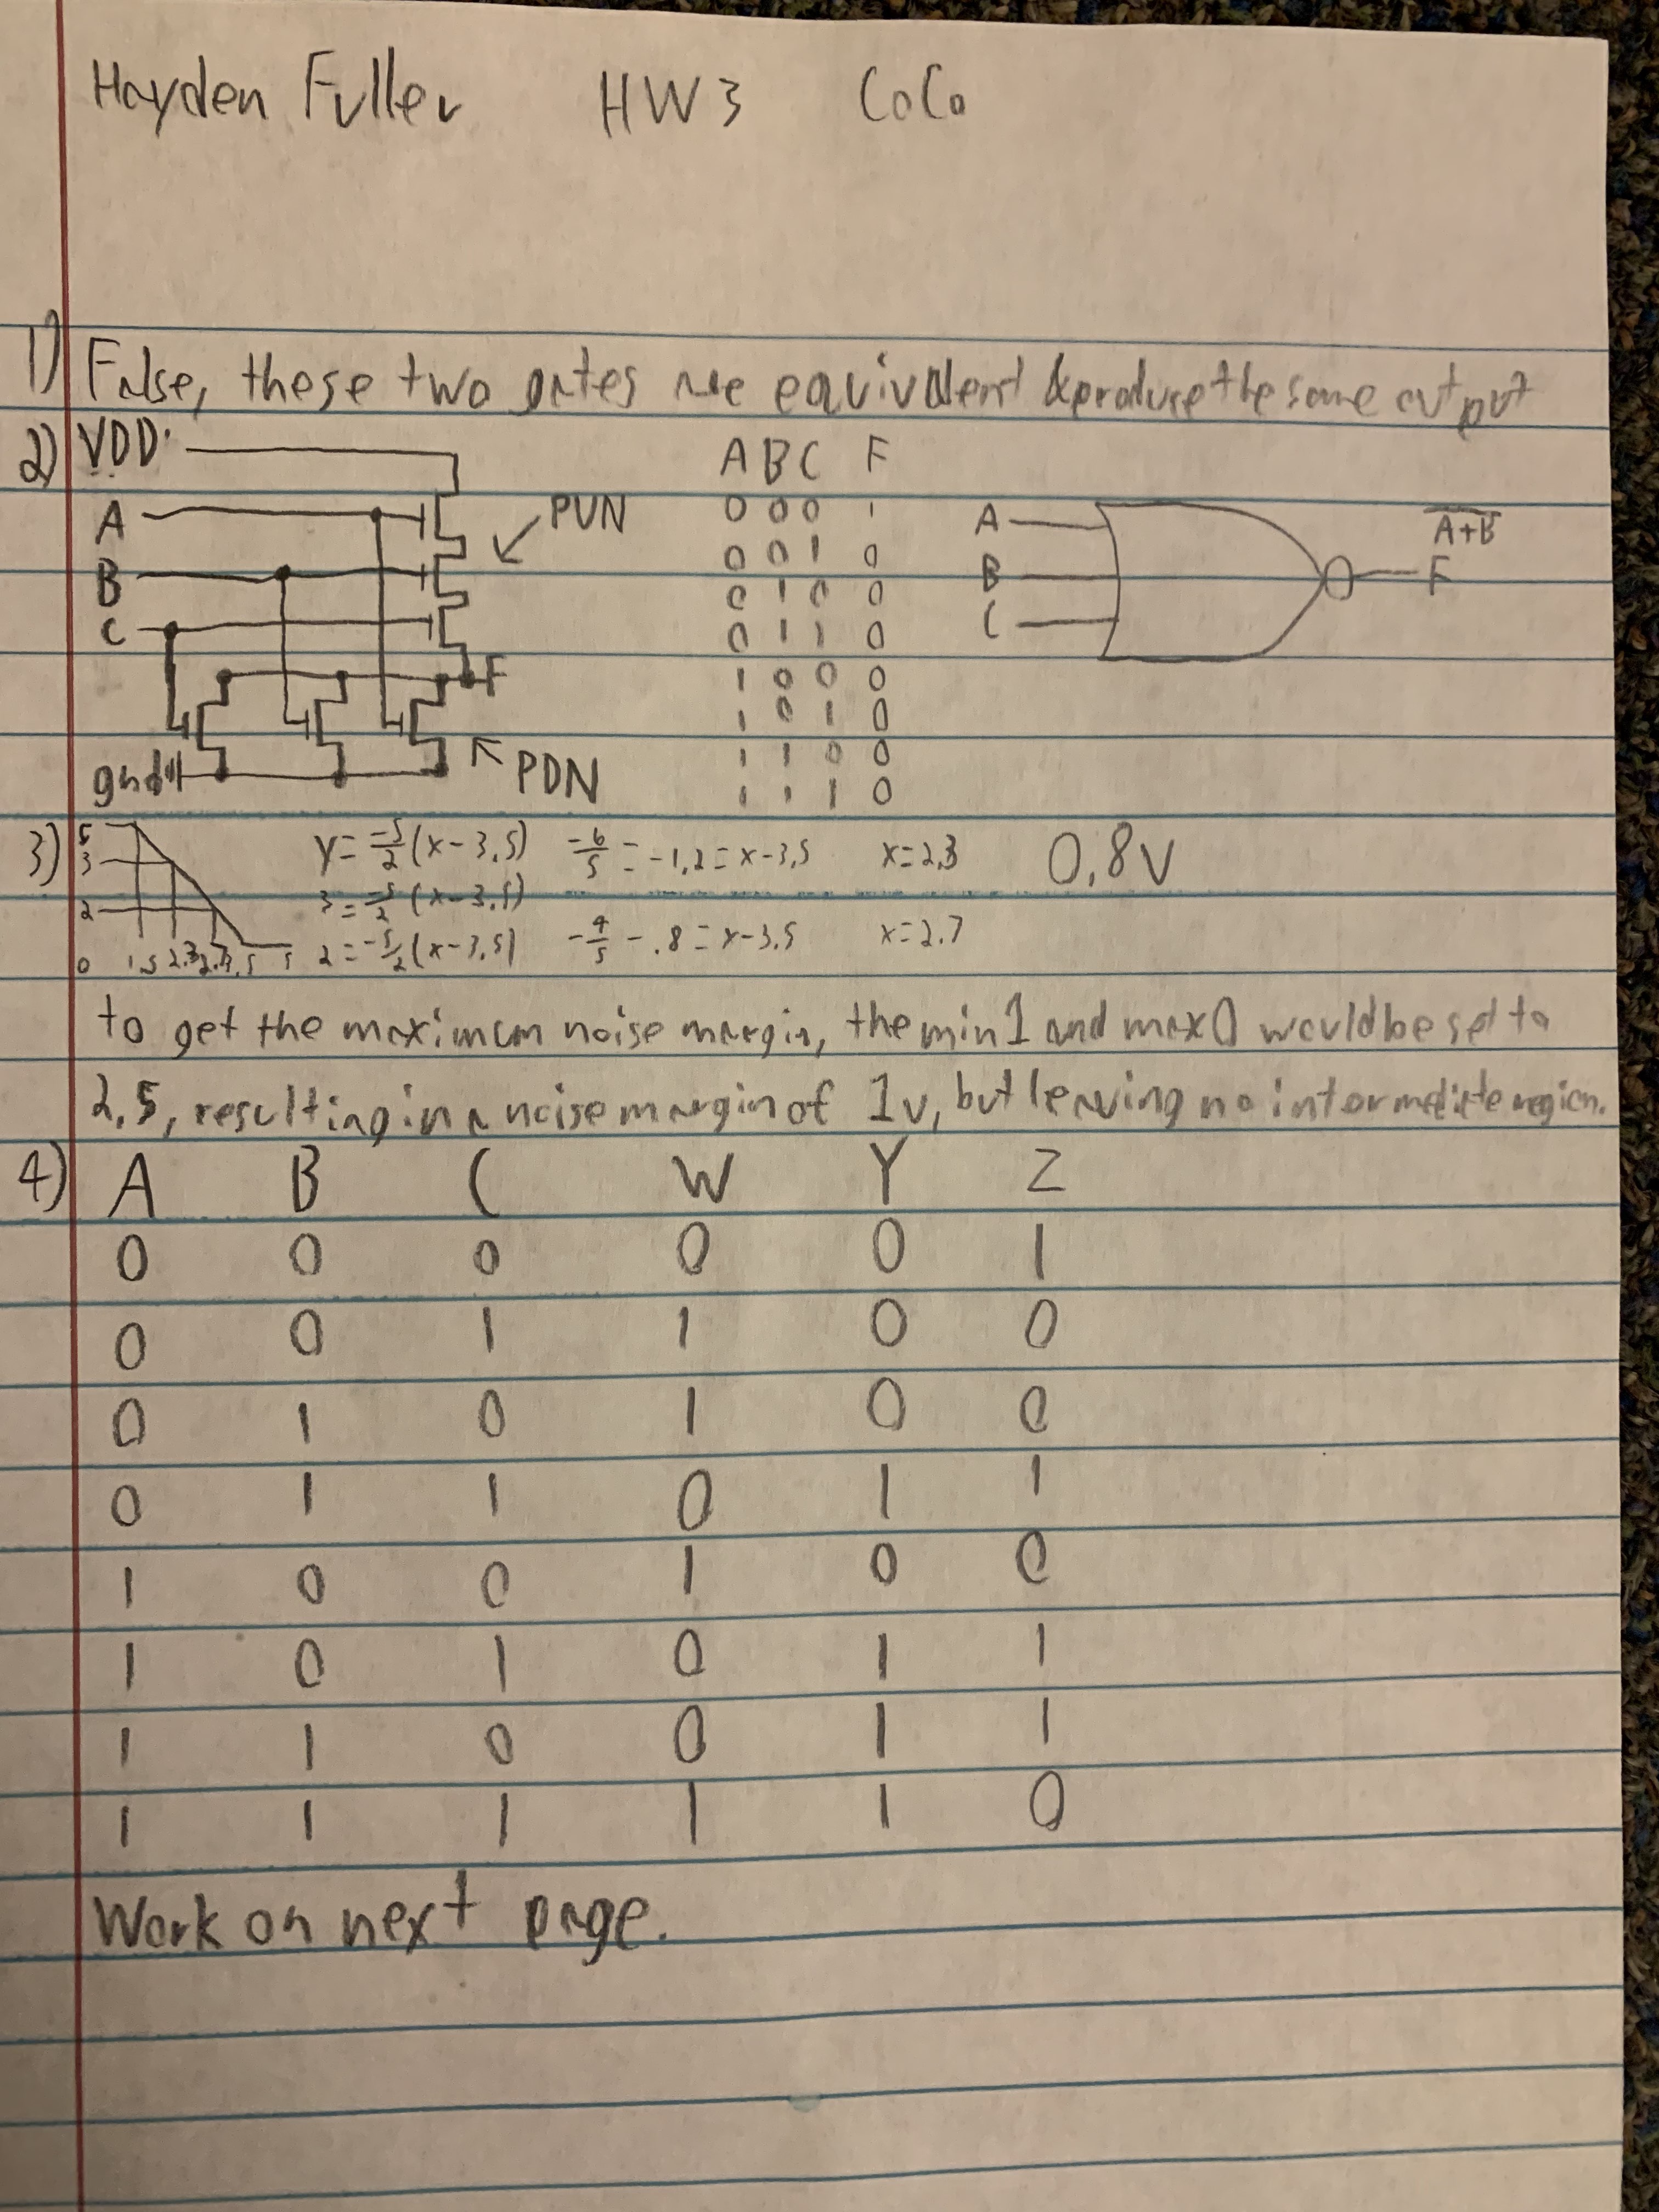 Hayden Fuller HW3 CoCo
1) False, these two gates are equivalent & produce the same output
2) VDD
A B C F
A
PUN
B
C
F
gnd
PDN
0 0 0 1
0 0 1 0
0 1 0 0
0 1 1 0
1 0 0 0
1 0 1 0
1 1 0 0
1 1 1 0
A
B
C
A+B
F
3) 5 y=-5/2(x-3.5) -6/5=-1.2=x-3.5 x=2.3 0.8V
3 3=-5/2(x-3.5)
2 2=-5/2(x-3.5) -4/5 -.8=x-3.5 x=2.7
0 1.5 2.3 2.7 3.5 5
to get the maximum noise margin, the min 1 and max 0 would be set to
2.5, resulting in a noise margin of 1v, but leaving no intermediate region.
4) A B C W Y Z
0 0 0 0 0 1
0 0 1 1 0 0
0 1 0 1 0 0
0 1 1 0 1 1
1 0 0 1 0 0
1 0 1 0 1 1
1 1 0 0 1 1
1 1 1 1 1 0
Work on next page.